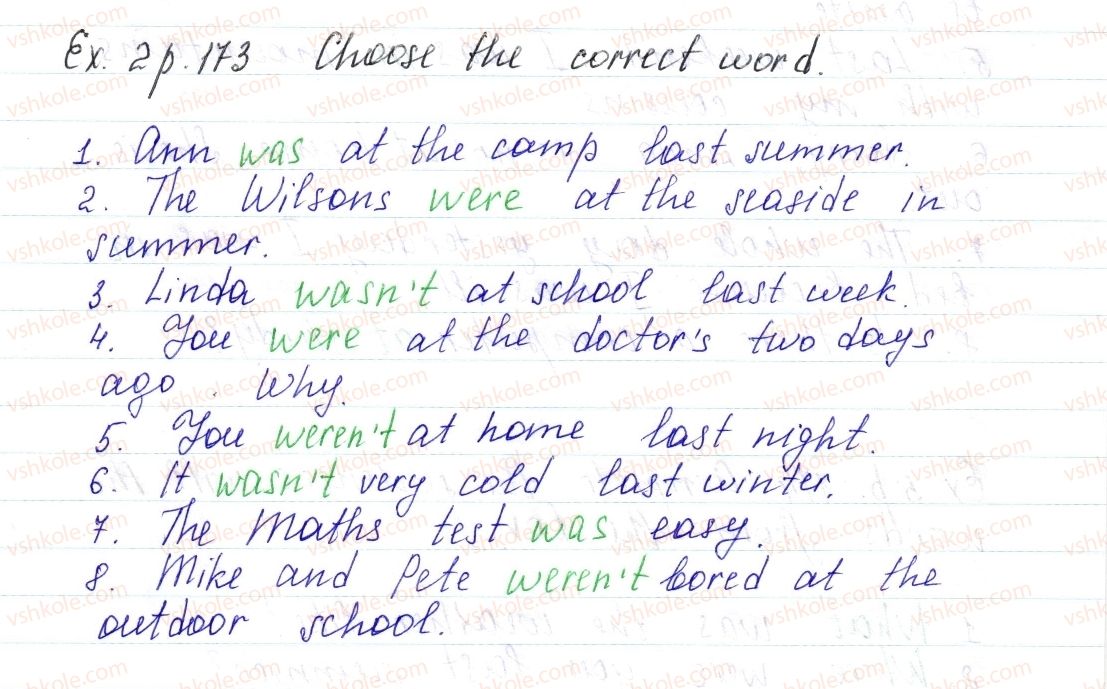 Ex. 2 p. 173 Choose the correct word.
1. Ann was at the camp last summer.
2. The Wilsons were at the seaside in
summer.
3. Linda wasn't at school last week.
4. You were at the doctor's two days
ago. Why.
5. You weren't at home last night.
6. It wasn't very cold last winter.
7. The Maths test was easy.
8. Mike and Pete weren't bored at the
outdoor school.